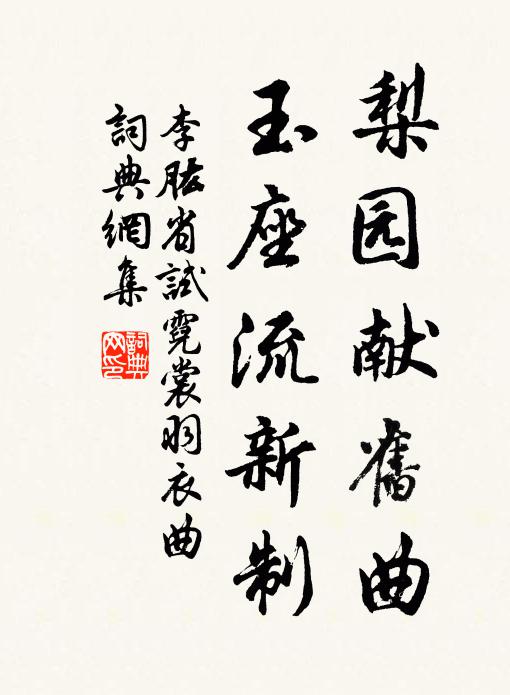 梨园献舊曲
玉座流新制
李肱省試霓裳羽衣曲
詞典網集
詞典網印